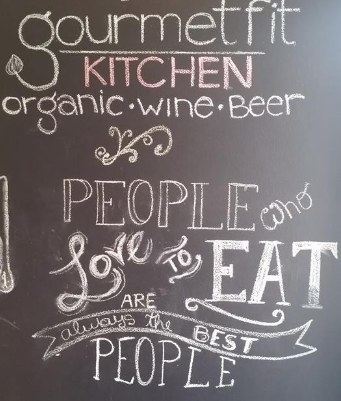 gourmetfit
KITCHEN
organic·wine·Beer
PEOPLE who
Love TO EAT
ARE
always the BEST
PEOPLE